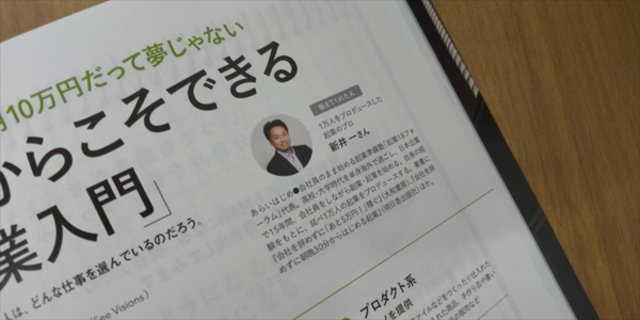 月10万円だって夢じゃない
からこそできる
業入門」
人は、どんな仕事を選んでいるのだろう。
See Visions)
教えてくれた人
1万人をプロデュースした
起業のプロ
新井一さん
あらいはじめ●会社員のまま始める起業準備塾「起業18フォ
ーラム」代表。高校・大学時代を単身海外で過ごし、日本企業
で15年間、会社員をしながら副業・起業を始める。自身の経
験をもとに、延べ1万人の起業をプロデュースする。著書に
『会社を辞めずに「あと5万円！」稼ぐ』(大和書房)、『会社を辞
めずに朝晩30分からはじめる起業』(明日香出版社)ほか。
プロダクト系
を提供